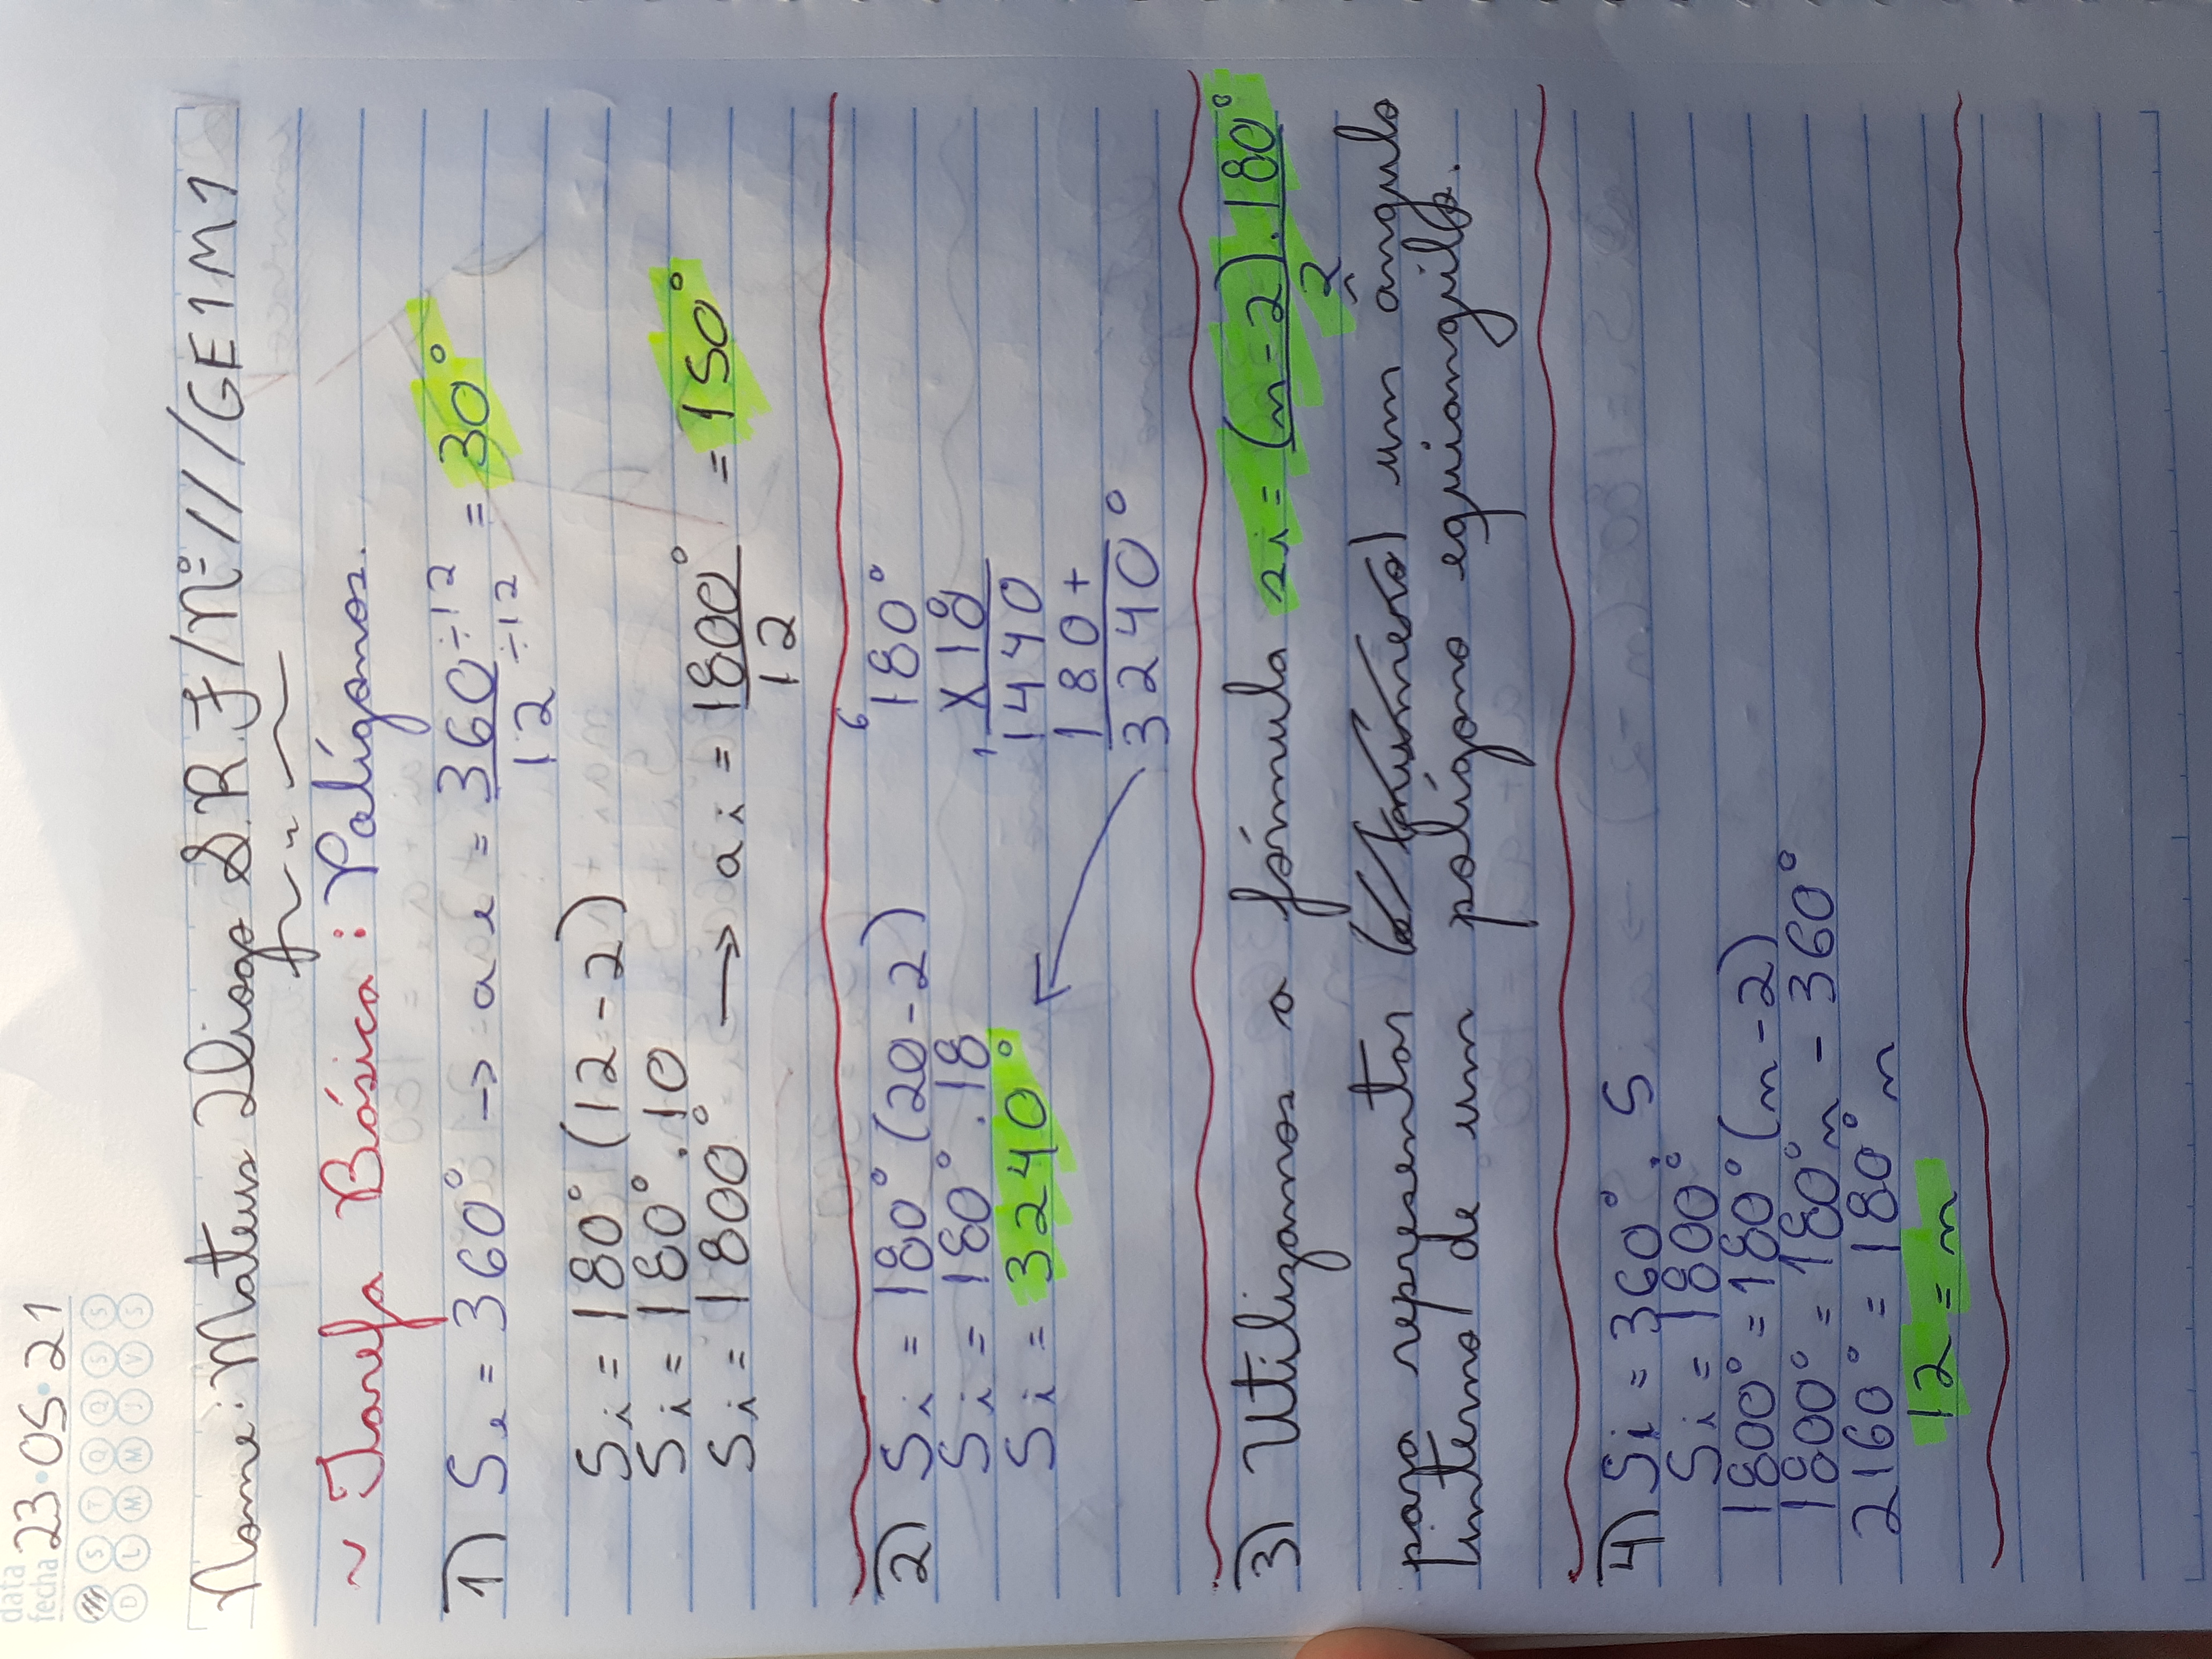 data
fecha 23·05·21
S T Q Q S S
D L M M J V S
Nome: Mateus Diogo S. R. F/Nº 11/GE1M1
~ Tarefa Básica: Polígonos.
1) Se = 360° -> ae = 360÷12 / 12÷12 = 30°
Si = 180° (12-2)
Si = 180° . 10
Si = 1800° -> ai = 1800° / 12 = 150°
2) Si = 180° (20-2)
Si = 180° . 18
Si = 3240°
6
180°
x18
1
1440
180+
3240°
3) Utilizamos a fórmula si = (n-2).180° / 2
para representar um ângulo
interno de um polígono equiangulo.
4) Si = 360° . 5
Si = 1800°
1800° = 180° (n-2)
1800° = 180°n - 360°
2160° = 180°n
12 = n